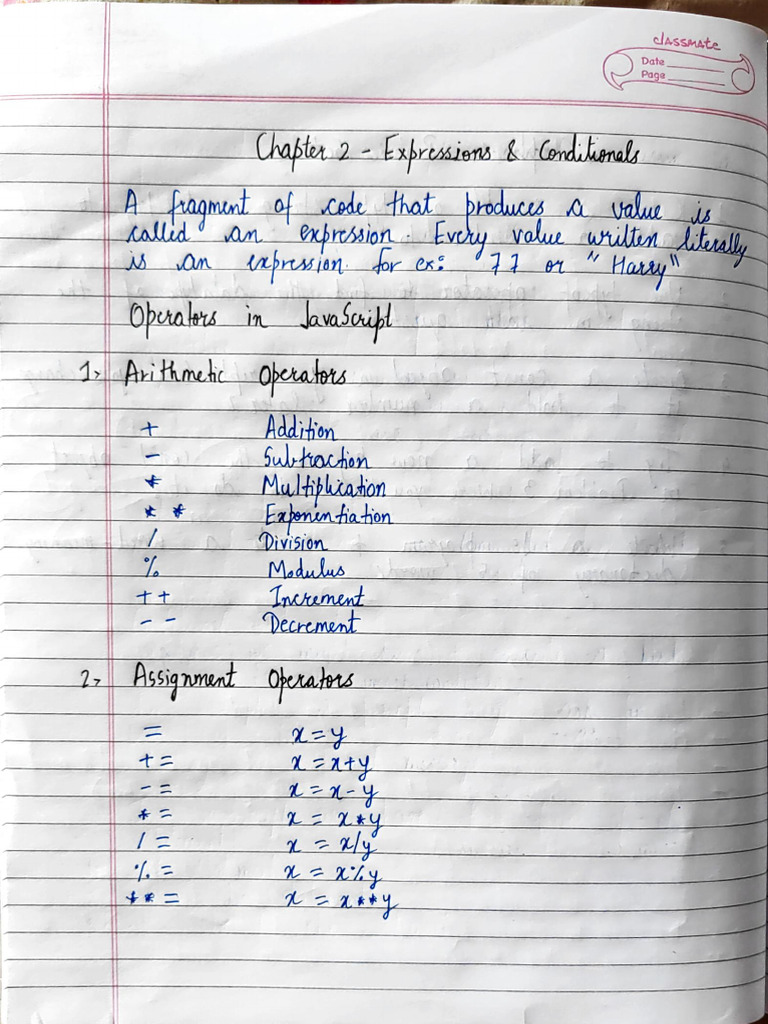 classmate
Date
Page
Chapter 2 - Expressions & Conditionals
A fragment of code that produces a value is
called an expression. Every value written literally
is an expression. for ex: 77 or "Harry"
Operators in JavaScript
1> Arithmetic Operators
+ Addition
- Subtraction
* Multiplication
** Exponentiation
/ Division
% Modulus
++ Increment
-- Decrement
2> Assignment Operators
= x=y
+= x=x+y
-= x=x-y
*= x = x*y
/= x = x/y
%= x = x%y
**= x = x**y